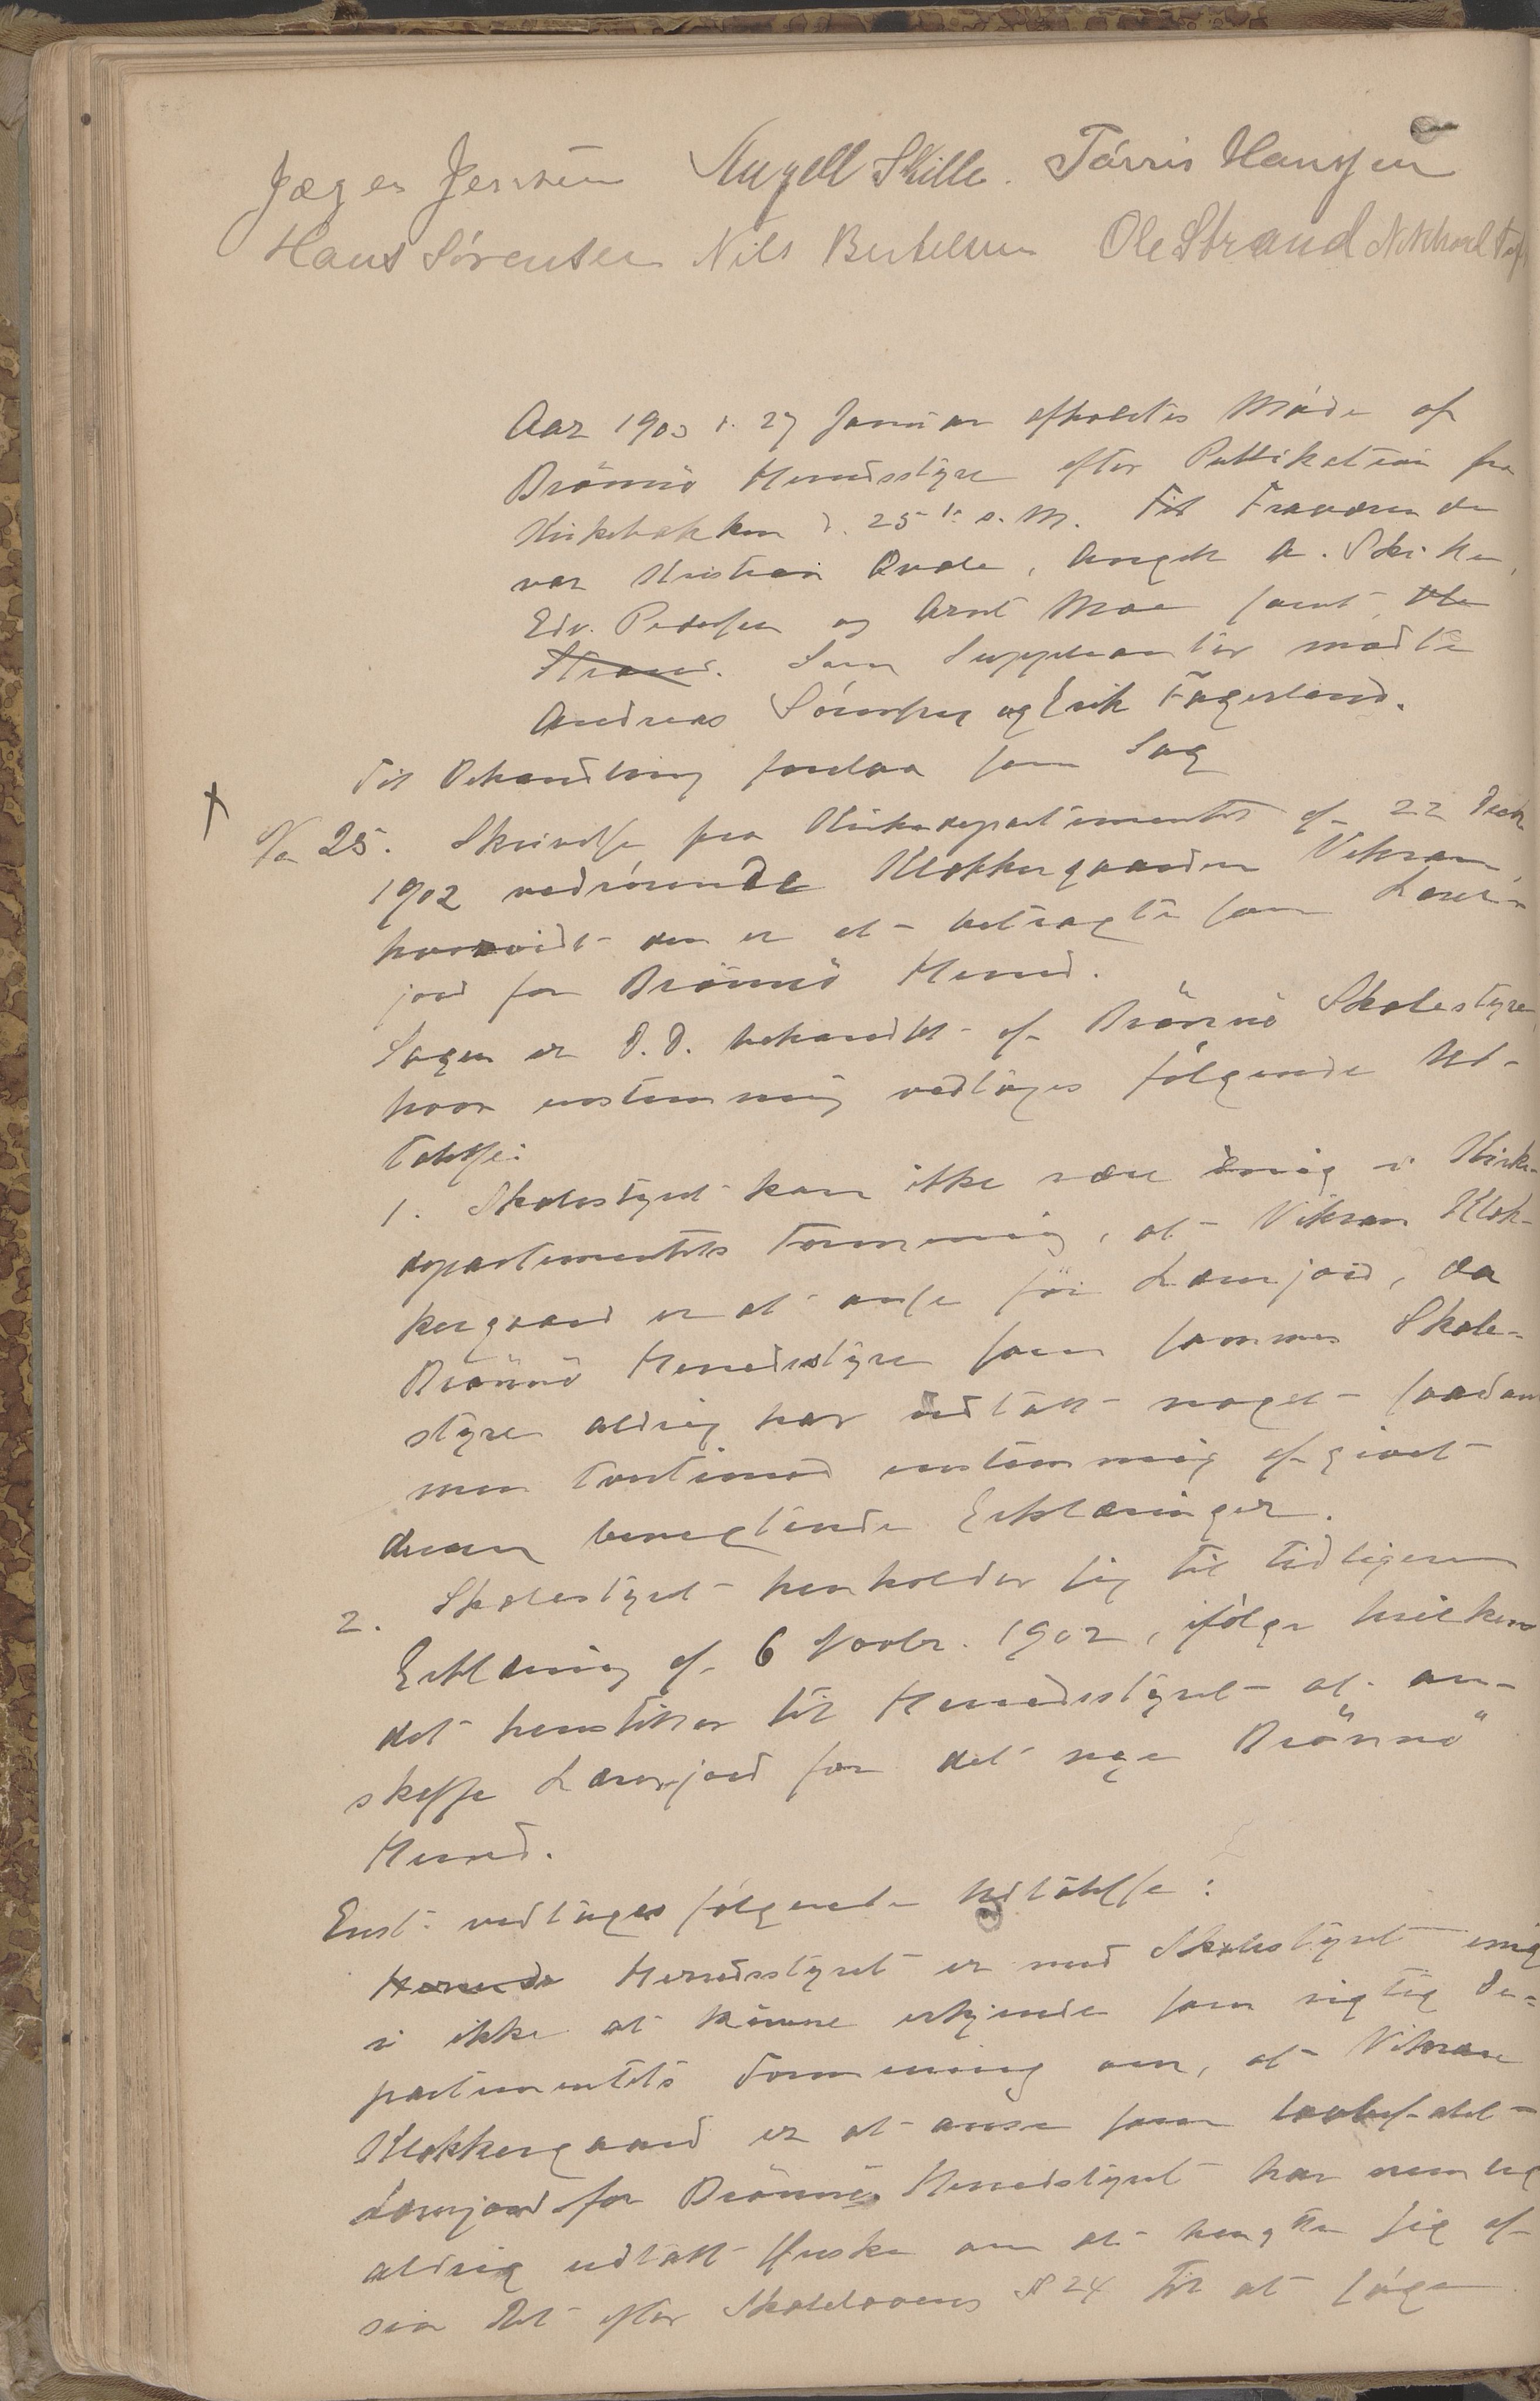 Jæger Jenssen Angell Skille. Tórris Hanssen
Hans Sörensen Nils Bertelsen Ole Strand
Aar 1903 d. 27 Januar afholdtes Möde af
Brönnö Herredsstyre efter Publikation fra
Kirkebakken d. 25de s. M. Til Fraværende
var Kristian Qvale, Angell A.
Edv. Pederssen og Arnt Moe samt Ole
Strand. Som Suppleanter mödte
Andreas Sörenssen og Erik Fagerland.
Til Behandling forelaa som Sag
No 25. Skrivelse fra Kirkedepartementet af 22 Decbr
1902 vedrörende Klokkergaarden Vikran,
hvorvidt den er at betragte som Lærer-
jord for Brönnö Herred.
Sagen er D. D. behandlet af Brönnö Skolestyre,
hvor enstemmig vedtoges fölgende Ud-
talelse:
1. Skolestyret kan ikke være enig i Kirke-
departementets Formening, at Vikran Klok-
kergaard er at ansse for Lærerjord, da
Brönnö Herredsstyre som sammes Skole-
styre aldrig har udtalt noget saadant
men tvertimod enstemmig afgivet
derom benegtende Erklæringer.
2. Skolestyret henholder sig til tidligere
Erklæring af 6 Novbr. 1902, ifölge hvilken
det henstiller til Herredsstyret at an-
skaffe Lærerjord for det nye "Brönnö"
Herred.
Enst. vedtoges fölgende Udtalelsse:
Herreds Herredsstyret er med Skolestyret enig
i ikke at kunne erkjende som rigtig De-
partementets Formening om, at Vikran
Klokkergaard er at anse som lovbefalet
Lærerjord for Brönnö. Herredstyret har nemlig
aldrig udtalt Önske om at benytte sig af
sin Ret efter Skolelovens § 24 til at